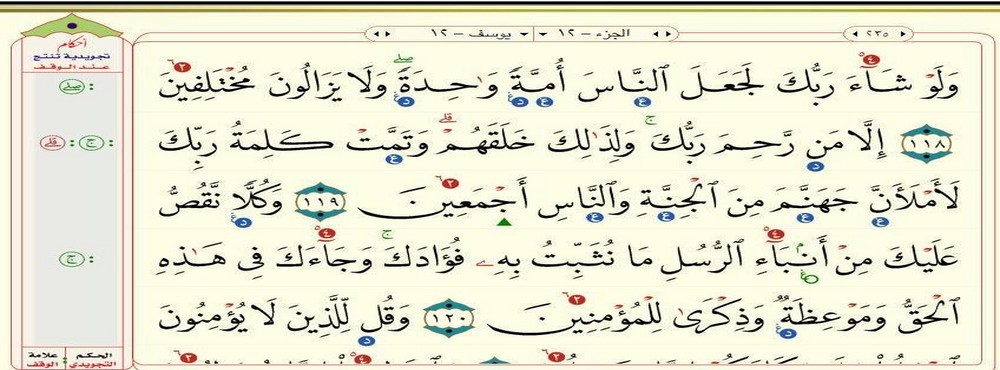 ٢٣٥
الجزء - ١٢
يوسف - ١٢
أحكام
تجويدية تنتج
عند الوقف
وَلَوْ شَآءَ رَبُّكَ لَجَعَلَ ٱلنَّاسَ أُمَّةً وَٰحِدَةً ۖ وَلَا يَزَالُونَ مُخْتَلِفِينَ
١١٨ إِلَّا مَن رَّحِمَ رَبُّكَ ۚ وَلِذَٰلِكَ خَلَقَهُمْ ۗ وَتَمَّتْ كَلِمَةُ رَبِّكَ
لَأَمْلَأَنَّ جَهَنَّمَ مِنَ ٱلْجِنَّةِ وَٱلنَّاسِ أَجْمَعِينَ ١١٩ وَكُلًّا نَّقُصُّ
عَلَيْكَ مِنْ أَنۢبَآءِ ٱلرُّسُلِ مَا نُثَبِّتُ بِهِۦ فُؤَادَكَ ۚ وَجَآءَكَ فِى هَٰذِهِ
ٱلْحَقُّ وَمَوْعِظَةٌ وَذِكْرَىٰ لِلْمُؤْمِنِينَ ١٢٠ وَقُل لِّلَّذِينَ لَا يُؤْمِنُونَ
صلے :
ج : قلے :
ج :
الحكم التجويدي
علامة الوقف